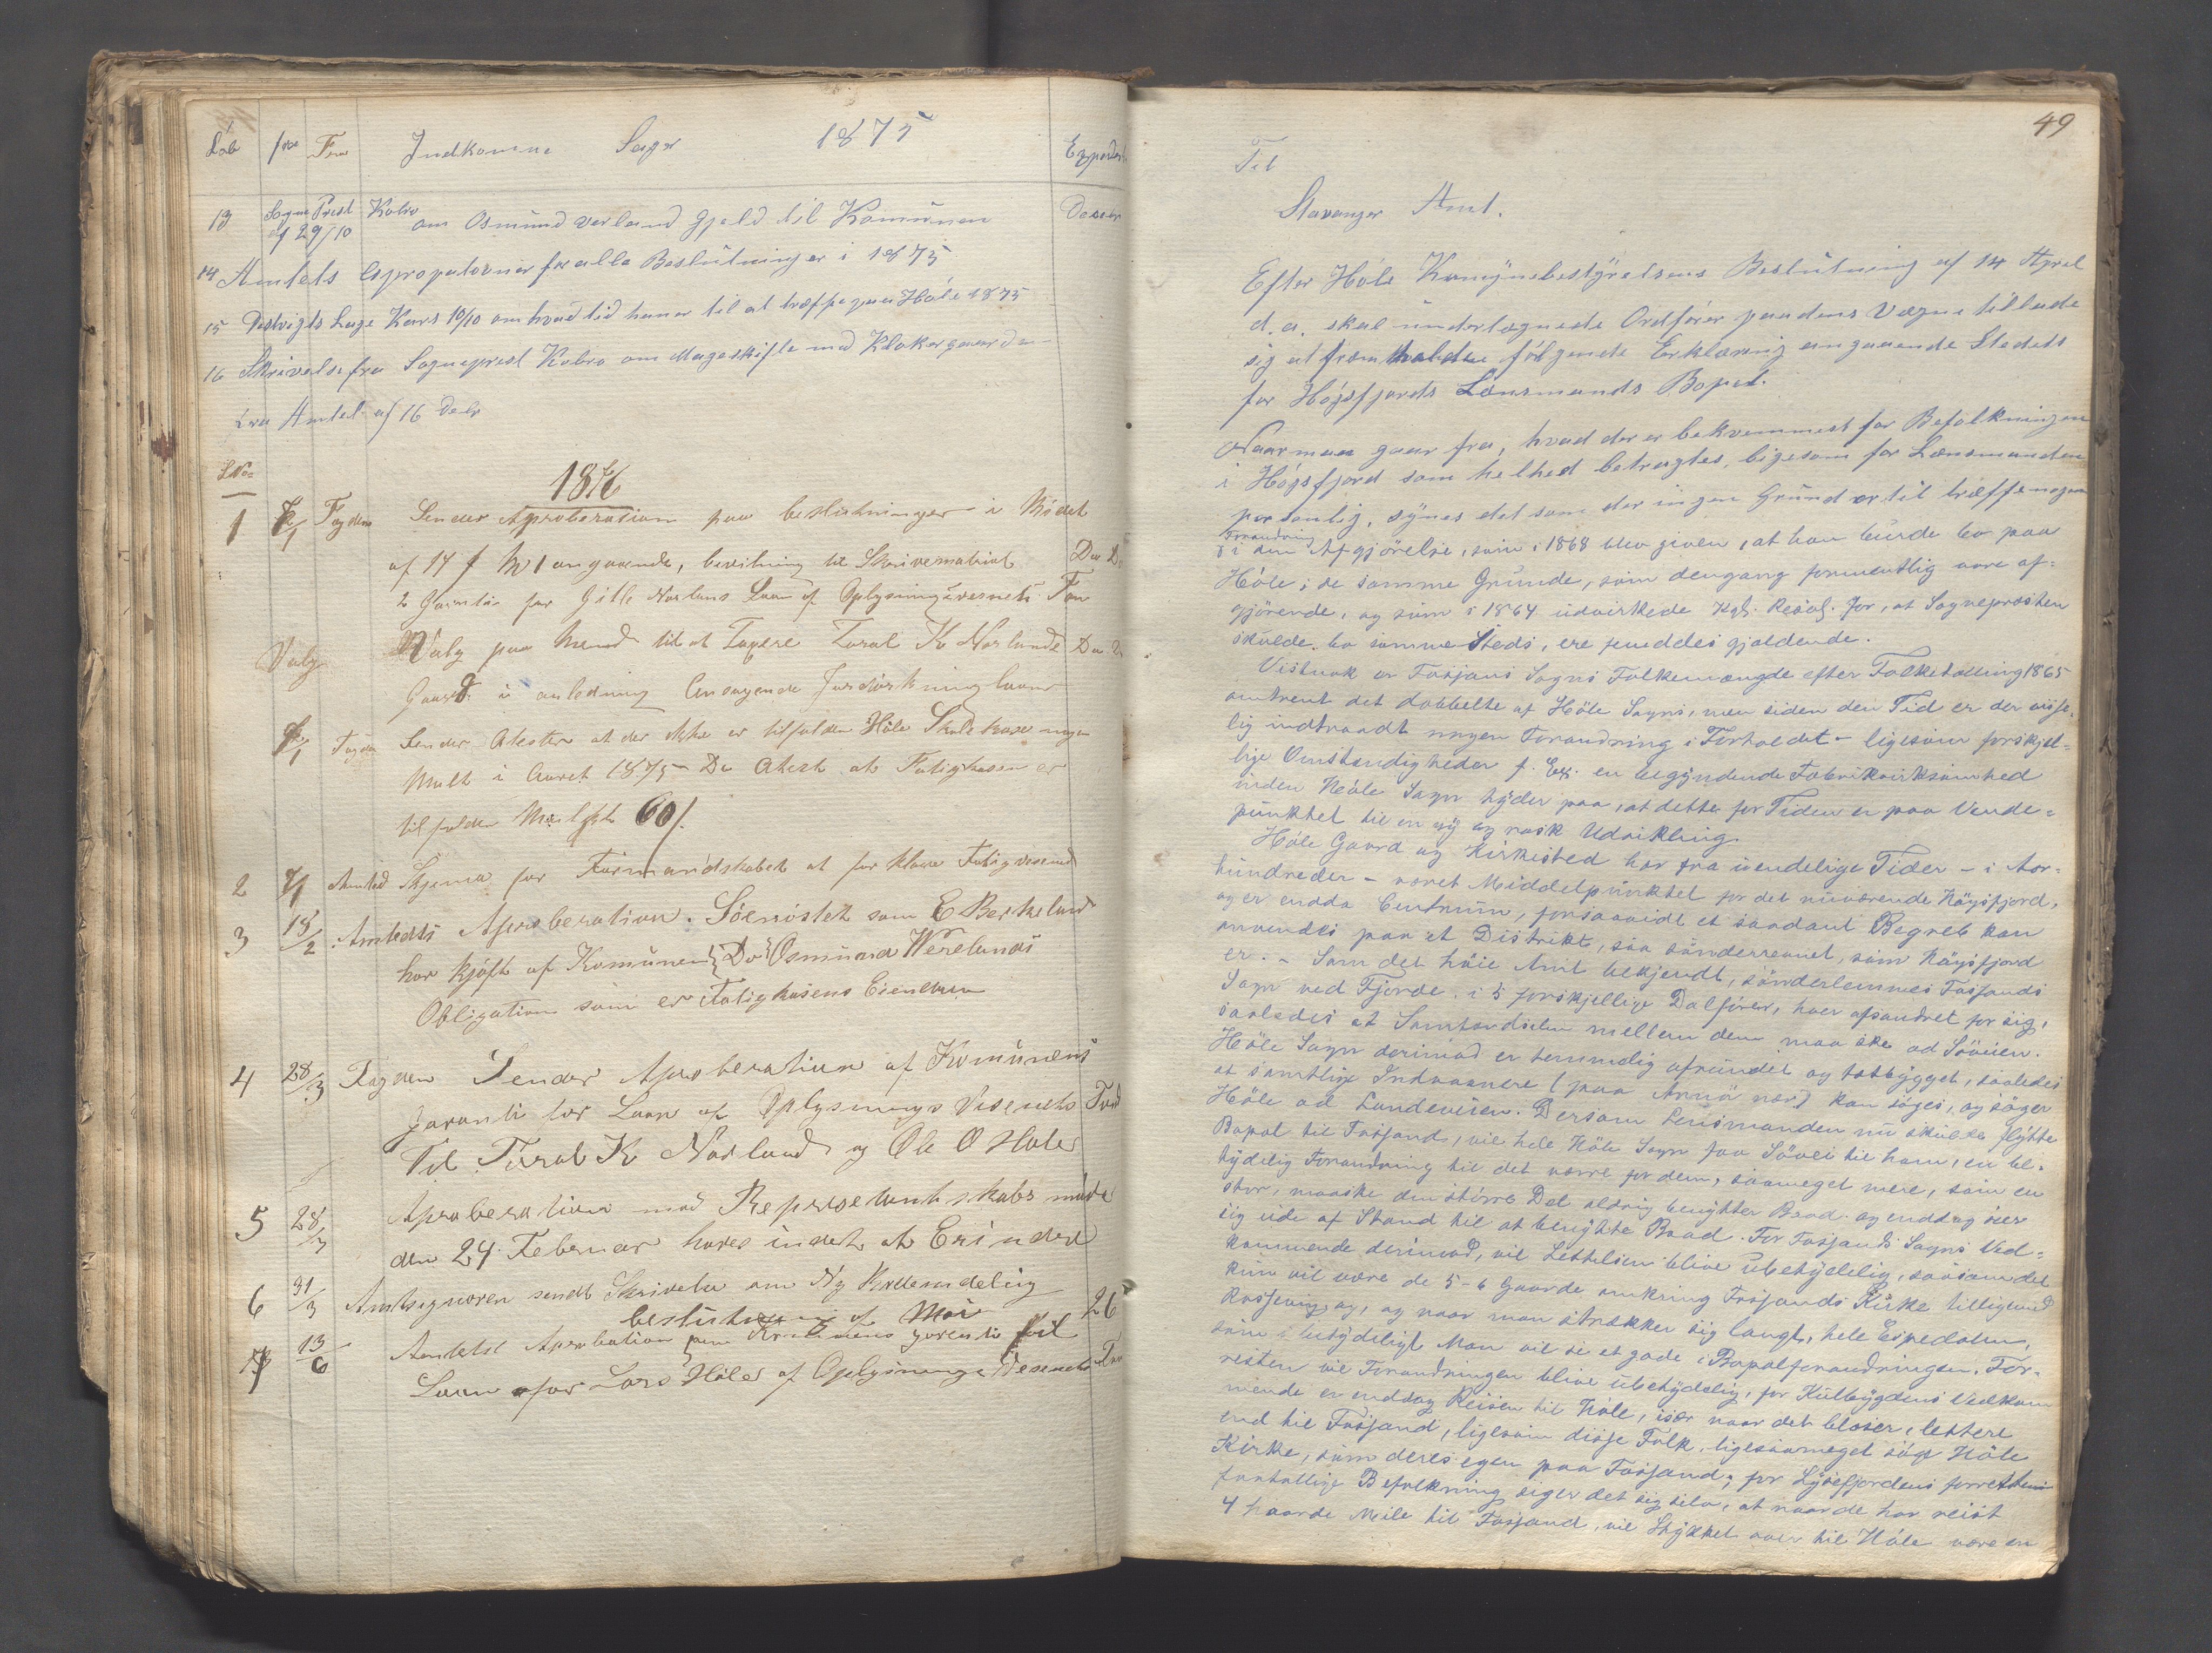 Löb fra Fra Indkomne Sager 1875 Expedert
13 Sogne Prest Kobro om Osmund Verland Gjeld til Komunen
af 29/10
14 Amtets Approbationer for alle Beslutninger i 1875
15 Distrigts Læge Kars 10/10 om hvad tid han er til at træffe paa Höle 1875
16 Skrivelse fra Sogneprest Kobro om Mageskifte med Klokergaarden
fra Amtet af 16 Decbr
LNo
1876
1 Fogden Sender Aproberation paa beslutninger i Mödet
af 14 angaaende, bevilning til Skrivematrial Do
2 Garntie for Gitle Norlans Laan af Oplysningsvesnets Fon
Valg Valg paa Mend til at Taxere Toral K Norlands Do
Gaard i anledning Ansøgende Jorddörkningslaan
Fogden Sender Atester at der ikke er tilfalden Höle Skolekase nogen
Mult i Aaret 1875 - Do Atest at Fatigkassen er
tilfalden Mulkt 60 ſ.
2 Amted Skjema for Formandskabet at forklare Fatigvesend
3 18/2 Amtedts Aproberation. Söenöstet som E Berkeland
har kjöft af Komunen Do Osmund Werelands
Obligation som er Fatigkasens Eiendom
4 28/3 Fogden Sender Aproberation af Komunens
garanti for Laan af Oplysnings Vesenets Fond
Til Toral K Norland og Ole O Hole
5 28/3 Aproberation med Represetantskabs möde
den 24 Februar haves indet at Erindre
6 31/3 Amtsignoren sendt Skrivelse om Ny Kredsindeling
beslutning af Mai 26
7 13/6 Amtets Aprobation om Komunens garenti for
Laan for Lars Höle af Oplysnings Vesenets
49
Til
Stavanger Amt.
Efter Höle Komunebestyrelsens Beslutning af 14 April
d.a. skal undertegnede Ordförer paa dens Vegne tillade
sig at fremholde fölgende Erklæring angaaende Stedet
for Högsfjords Lensmands Bopel.
Naar man gaar fra, hvad der er bekvemmest for Befolkningen
i Högsfjord som helhed betragtet, ligesom for Lænsmanden
personlig, synes det som der ingen Grund er til træffe nogen
Forandring
i den Afgjörelse, som i 1868 blev given, at han burde bo paa
Höle; de samme Grunde, som dengang formentlig vare af=
gjörende, og som i 1864 udvirkede Kgl. Resol. for, at Sognepresten
skulde bo samme Steds, ere fremdeles gjeldende.
Vistnok er Fosjans Sogns Folkemængde efter Folketælling 1865
omtrent det dobbelte af Höle Sogns, men siden den Tid er der visse-
lig indtraadt nogen Forandring i Forholdet - ligesom forskjel=
lige Omstendigheder f. Ex. en begyndende Fabrikvirksomhed
inden Höle Sogn tyder paa, at dette for Tiden er paa Vende=
punktet til en ny og rask Udvikling.
Höle Gaard og Kirkested har fra uendelige Tider - i Aar=
hundreder - været Middelpunktet for det nuværende Höysfjord,
og er endda Centrum, forsaavidt et saadant Begreb kan
anvendes paa et Distrikt, saa sönderrevet, som Höysfjord
er. - Som det höie Amt bekjendt, sönderlemmes Fosjands
Sogn ved Fjorde i 5 forskjellige Dalförer, hver afsondret for sig,
saaledes at Samfærdselen mellem dem maa ske ad Söveien.
Höle Sogn derimod er temmelig afrundet og tætbygget, saaledes
at samtlige Indvaanere (paa Annö nær) kan söges, og söger
Höle ad Landeveien. Dersom Lensmanden nu skulde flytte
Bopel til Fosjand, vil hele Höle Sogn faa Sövei til ham, en be-
tydelig Forandring til det værre for dem, saameget mere, som en
stor, maaske den större Del aldrig benytter Baad og endog ser
sig ude af Stand til at benytte Baad. For Fosjands Sogns Ved=
kommende derimod, vil Lettelsen blive ubetydelig, saasom det
kun vil være de 5-6 Gaarde omkring Fosjands Kirke tilligemed
Rosseviog, og naar man strækker sig langt, hele Espedalen,
som i ubetydeligt Mon vil se et gode i Bopelforandringen. For-
resten vil Forandringen blive ubetydelig, for Kulbygdens Vedkom
mende er endog Reisen til Höle, især naar det blæser, lettere
end til Fosjand, ligesom disse Folk ligesaameget söge Höle
Kirke, som deres egen paa Fosjand; for Lysefjordens forresten
faatallige Befolkning siger det sig selv, at naar de har reist
4 haarde Mile til Fosjand, vil Stykket over til Höle være en